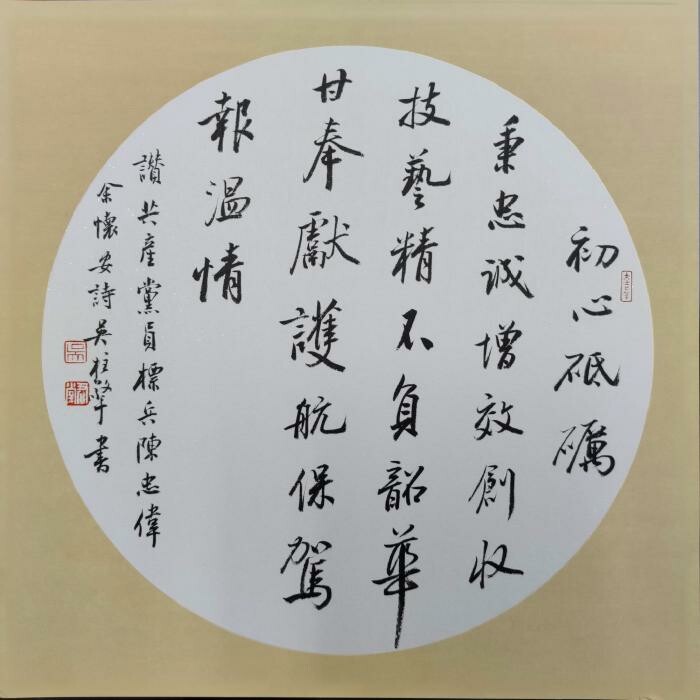 初心砥礪
秉忠誠增效創收
技藝精不負韶華
甘奉獻護航保駕
報溫情
讚共產黨員標兵陳忠偉
余懷安詩吳柱擎書